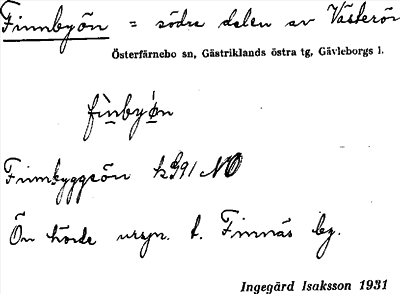 Finnbyön = södra delen av Västerön
Österfärnebo sn, Gästriklands östra tg, Gävleborgs l.
fìnbyø̀n
Finnbyggeön k 991 NO
Ön hörde urspr. t. Finnäs by.
Ingegärd Isaksson 1931